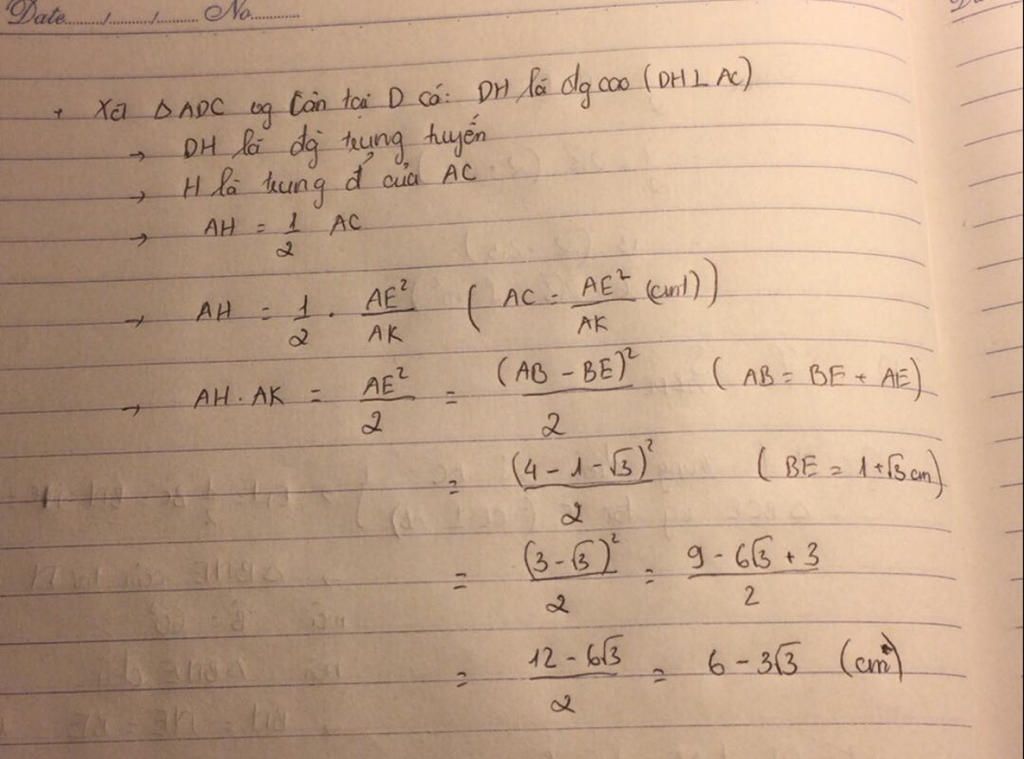 Date......./......../......... No.............
+ Xét ΔADC vg cân tại D có: DH là đg cao (DH⊥AC)
→ DH là đg trung tuyến
→ H là trung đ' của AC
→ AH = 1/2 AC
→ AH = 1/2 . AE²/AK ( AC = AE²/AK (cmt))
→ AH.AK = AE²/2 = (AB - BE)²/2 ( AB = BE + AE)
= (4 - 1 - √3)²/2 ( BE = 1+√3 cm)
= (3 - √3)²/2 = 9 - 6√3 + 3/2
= 12 - 6√3/2 = 6 - 3√3 (cm²)